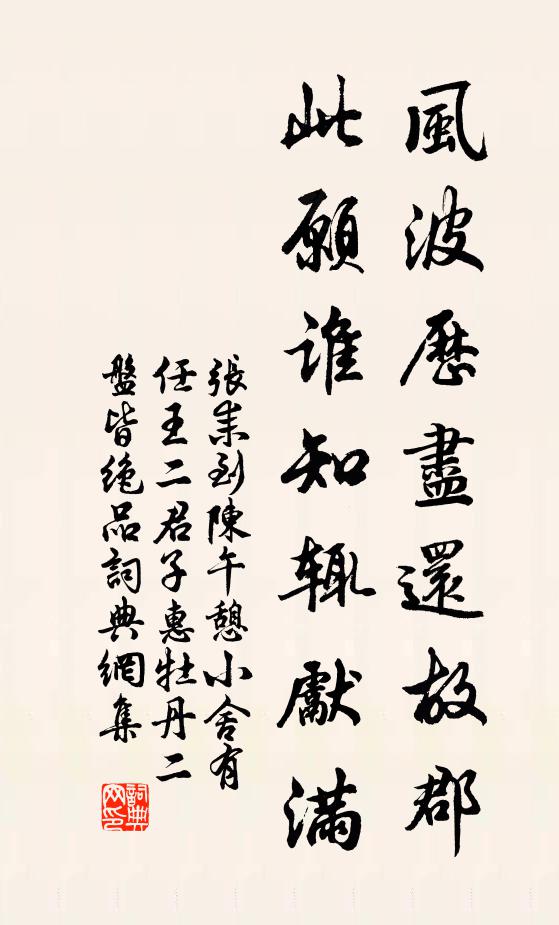 風波歷盡還故郡
此願誰知輒獻滿
張耒到陳午憩小舍有
任王二君子惠牡丹二
盤皆絕品詞典網集
詞典網印